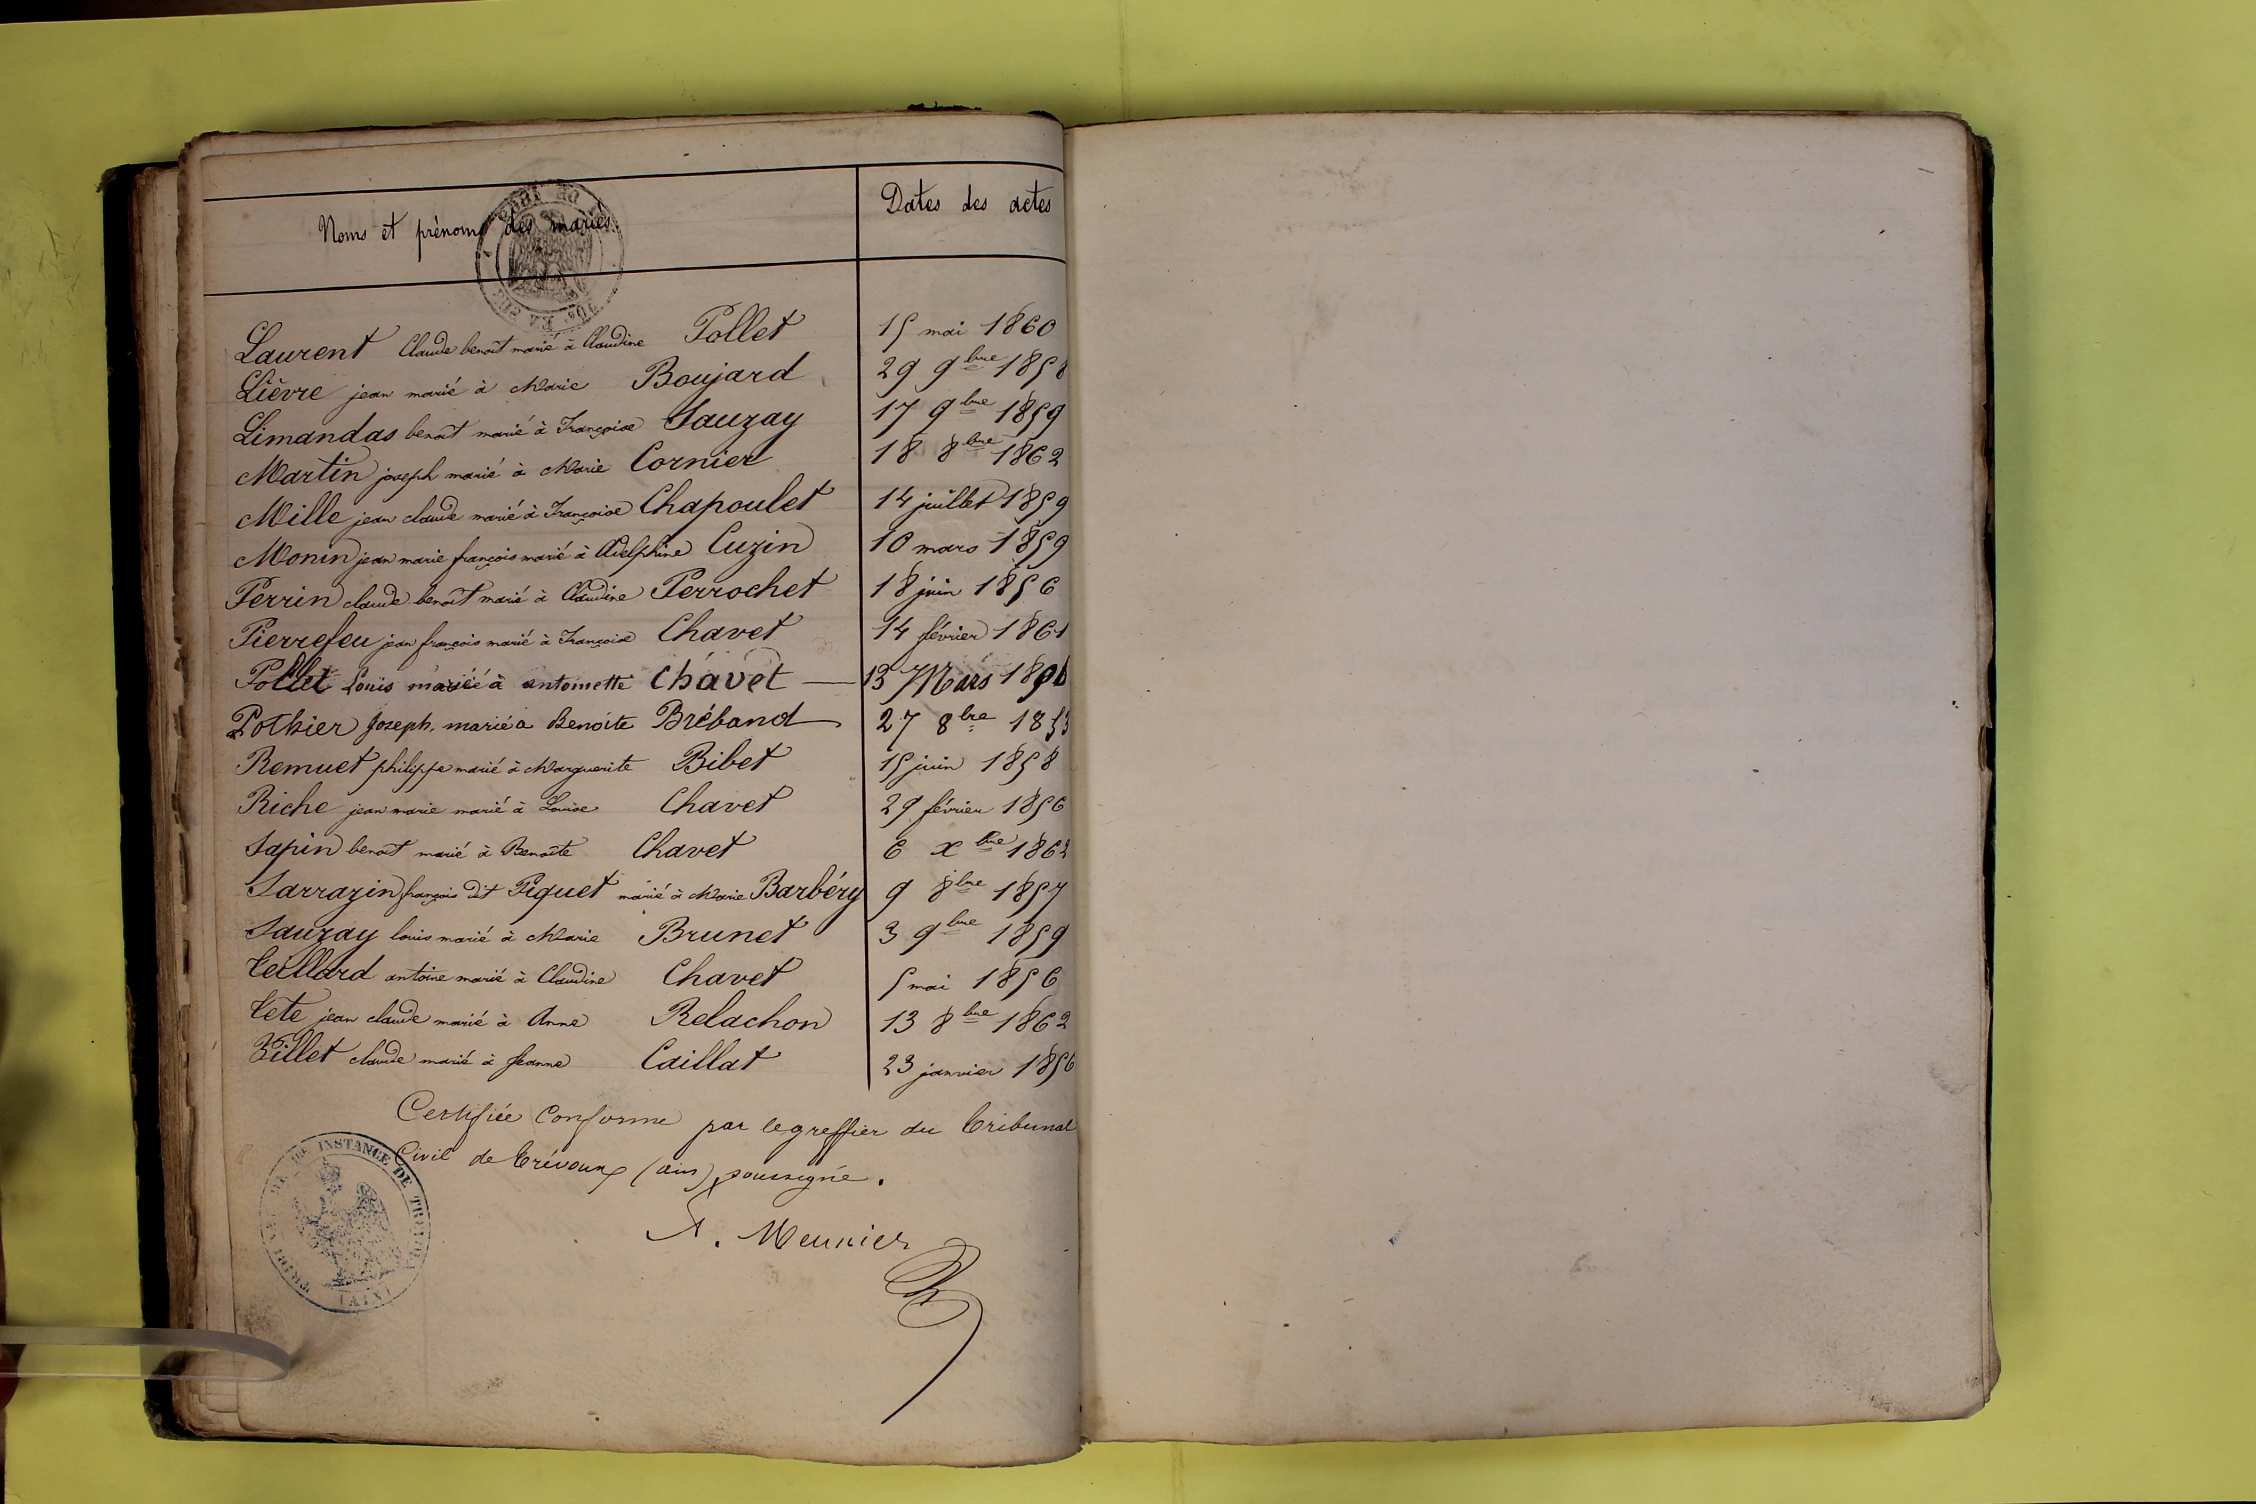 Noms et prénoms des mariés. Dates des actes
Laurent Claude benoît marié à Claudine Pollet 15 mai 1860
Lièvre jean marié à Marie Boujard 29 9bre 1858
Limandas benoît marié à Françoise Sauzay 17 9bre 1859
Martin joseph marié à Marie Cornier 18 8bre 1862
Mille jean claude marié à Françoise Chapoulet 14 juillet 1859
Monin jean marie françois marié à Adelphine Cuzin 10 mars 1859
Perrin claude benoît marié à Claudine Perrochet 18 juin 1856
Pierrefeu jean françois marié à Françoise Chavet 14 février 1861
Pollet Louis marié à antoinette Chavet 13 Mars
Pothier Joseph marié à Benoite Bréband 27 8bre 1853
Remuet philippe marié à Marguerite Bibet 15 juin 1858
Riche jean marie marié à Louise Chavet 29 février 1856
Sapin benoît marié à Benoîte Chavet 6 Xbre 1862
Sarrazin françois dit Piquet marié à Marie Barbéry 9 8bre 1857
Sauzay louis marié à Marie Brunet 3 9bre 1859
Teillard antoine marié à Claudine Chavet 5 mai 1856
Tête jean claude marié à Anne Relachon 13 8bre 1862
Tillet claude marié à Jeanne Caillat 23 janvier 1856
Certifiée Conforme par le greffier du Tribunal
Civil de Trévoux (ain) soussigné.
A. Meunier
TRIBAL DE 1ERE INSTANCE DE TREVOUX
(AIN)